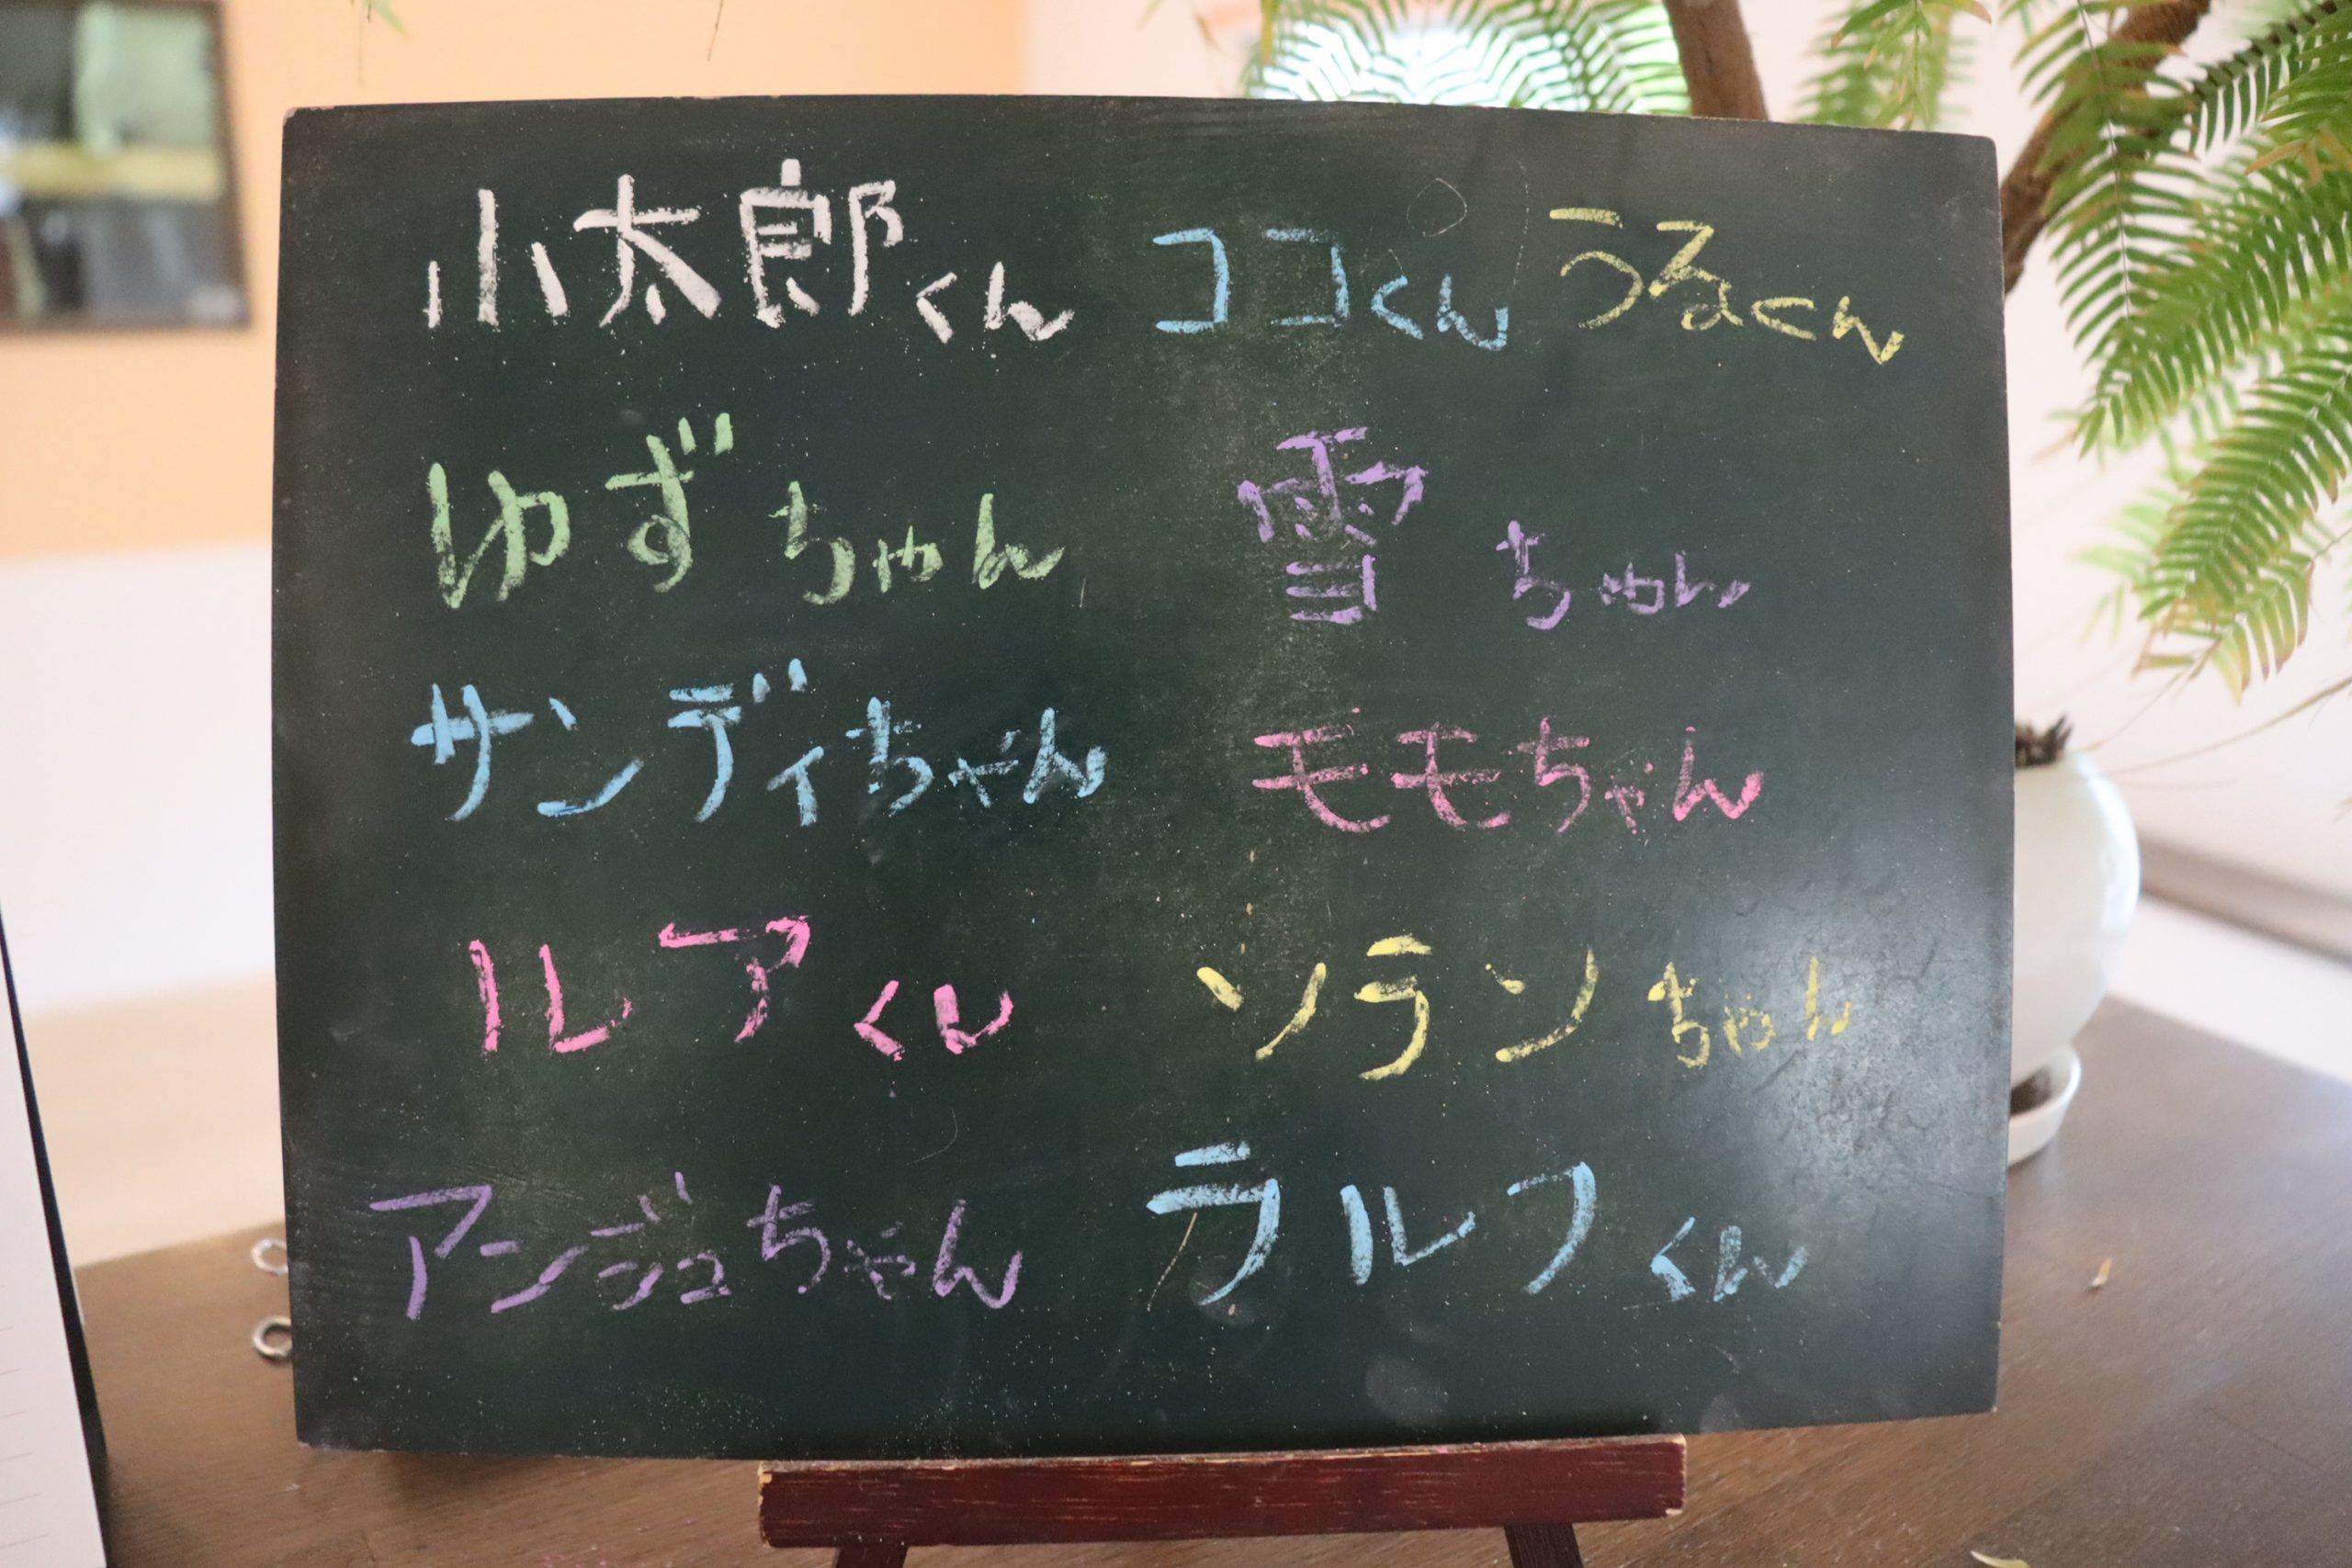 小太郎くん ココくん うるくん
ゆずちゃん 雪ちゃん
サンディちゃん モモちゃん
ルアくん ソランちゃん
アンジュちゃん ラルフくん